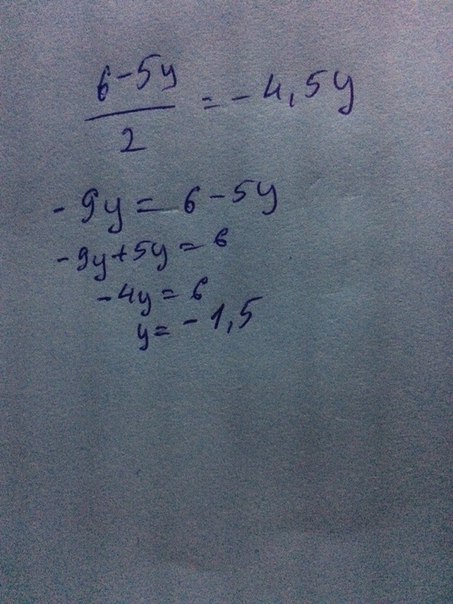 6-5y
2
= -4,5y
-9y = 6-5y
-9y+5y=6
-4y=6
y=-1,5